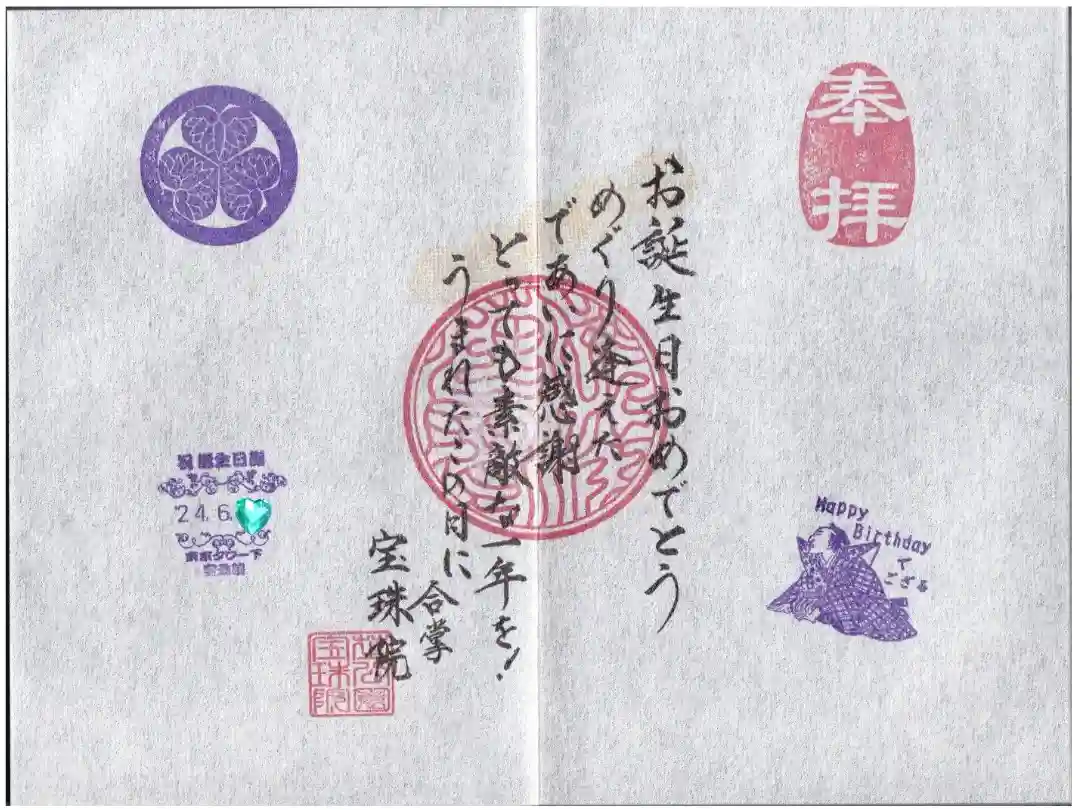 奉拝
お誕生日おめでとう
めぐり逢えた
であいに感謝
とっても素敵な一年を!
うまれたこの日に
合掌
宝珠院
Happy
Birthday
で
ござる
祝 誕生日 謝
24.6.
東京タワー下
宝珠院
宝珠院